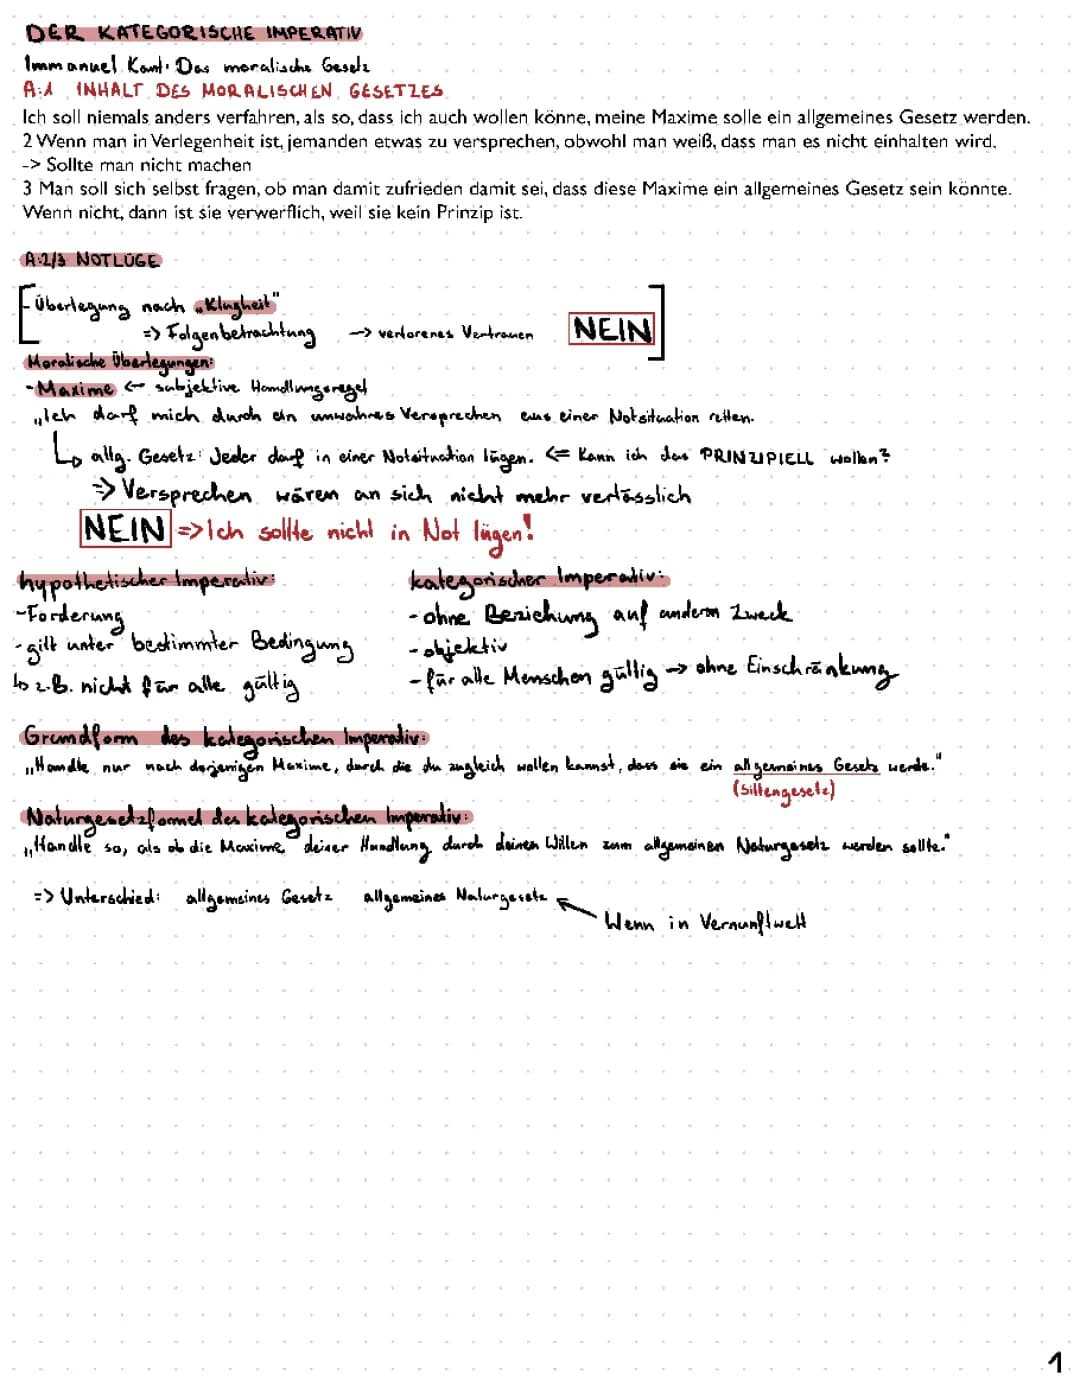 DER KATEGORISCHE IMPERATIV
Immanuel Kant: Das moralische Gesetz
A:1 INHALT DES MORALISCHEN GESETZES
Ich soll niemals anders verfahren, als so, dass ich auch wollen könne, meine Maxime solle ein allgemeines Gesetz werden.
2 Wenn man in Verlegenheit ist, jemanden etwas zu versprechen, obwohl man weiß, dass man es nicht einhalten wird.
-> Sollte man nicht machen
3 Man soll sich selbst fragen, ob man damit zufrieden damit sei, dass diese Maxime ein allgemeines Gesetz sein könnte.
Wenn nicht, dann ist sie verwerflich, weil sie kein Prinzip ist.
A:2/3 NOTLÜGE
-Überlegung nach „Klugheit"
=> Folgenbetrachtung -> verlorenes Vertrauen NEIN
Moralische Überlegungen:
-Maxime <- subjektive Handlungsregel
„Ich darf mich durch ein unwahres Versprechen aus einer Notsituation retten.
↳ allg. Gesetz: Jeder darf in einer Notsituation lügen. <= Kann ich das PRINZIPIELL wollen?
=> Versprechen wären an sich nicht mehr verlässlich
NEIN =>Ich sollte nicht in Not lügen!
hypothetischer Imperativ:
-Forderung
-gilt unter bestimmter Bedingung
↳ z.B. nicht für alle gültig
kategorischer Imperativ:
-ohne Beziehung auf andern Zweck
-objektiv
-für alle Menschen gültig -> ohne Einschränkung
Grundform des kategorischen Imperativ:
„Handle nur nach derjenigen Maxime, durch die du zugleich wollen kannst, dass sie ein allgemeines Gesetz werde."
(Sittengesetz)
Naturgesetzformel des kategorischen Imperativ:
„Handle so, als ob die Maxime deiner Handlung durch deinen Willen zum allgemeinen Naturgesetz werden sollte."
=> Unterschied: allgemeines Gesetz allgemeines Naturgesetz
Wenn in Vernunftwelt
1